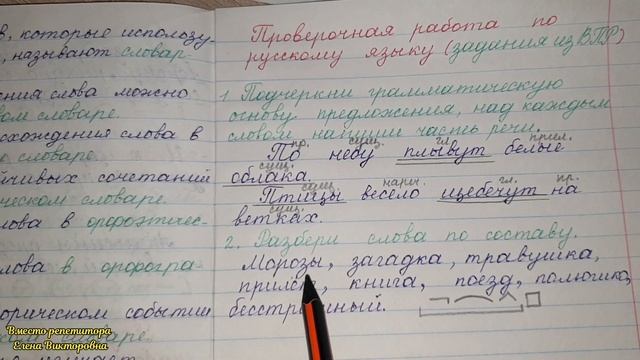 в, которые использу-
, называют словар-
ения слова можно
вом словаре.
схождения слова в
словаре.
йчивых сочетаний
ческом словаре.
лова в орфоэпичес-
лова в орфогра-
орическом событии
Проверочная работа по
русскому языку (задания из ВПР)
1. Подчеркни грамматическую
основу предложения, над каждым
словом напиши часть речи.
пр. сущ. гл. прил.
По небу плывут белые
сущ.
облака.
сущ. нареч. гл. пр.
Птицы весело щебечут на
сущ.
ветках.
2. Разбери слова по составу.
Морозы, загадка, травушка,
книга, поезд,
бесстрашный.
Вместо репетитора
Елена Викторовна